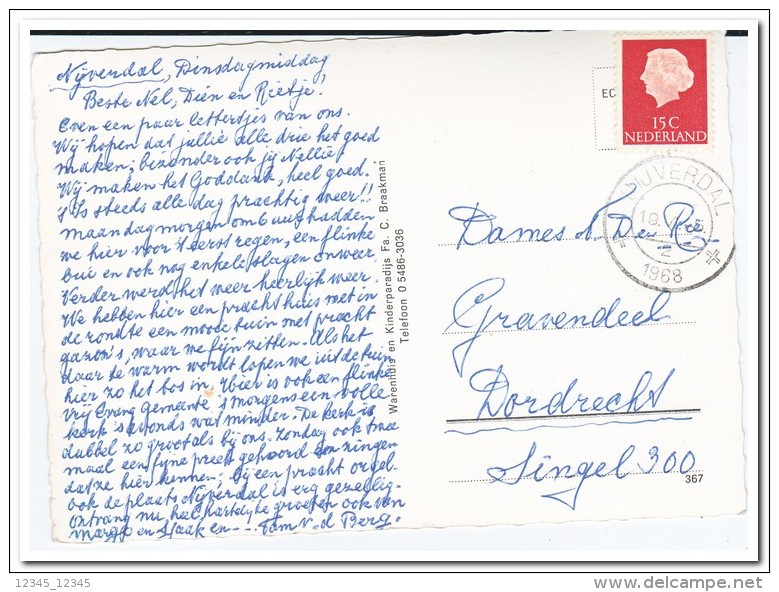 Nijverdal, Dinsdagmiddag
Beste Nel, Dien en Rietje!
Even een paar lettertjes van ons.
Wij hopen dat jullie alle drie het goed
maken; bezonder ook jij Nellie
Wij maken het Goddank, heel goed.
't Is steeds alle dag prachtig weer!!
maandagmorgen om 6 uur hadden
we hier voor 't eerst regen, een flinke
bui en ook nog enkele slagen onweer,
Verder werd het weer heerlijk weer.
We hebben hier een pracht huis met in
de rondte een mooie tuin met pracht
gazon's, waar we fijn zitten. Als het
daar te warm wordt lopen we uit de tuin
hier zo het bos in. Hier is ook een flinke
Vrij Evang Gemeente 's morgens een volle
kerk 's avonds wat minder. De kerk is
dubbel zo groot als bij ons. Zondag ook twee
maal een fijne preek gehoord en zingen
dat ze hier kennen; bij een pracht orgel.
ook de plaats Nijverdal is erg gezellig.
Ontvang nu heel hartelijke groeten ook van
en Sjaak en -- Tom v. d Berg.
Warenhuis en Kinderparadijs Fa. C. Braakman
Telefoon 0 5486-3036
EC
15 C
NEDERLAND
NIJVERDAL
19
2
1968
Dames N. De
Gravendeel
Dordrecht
Singel 300
367
12345_12345
delcampe.net